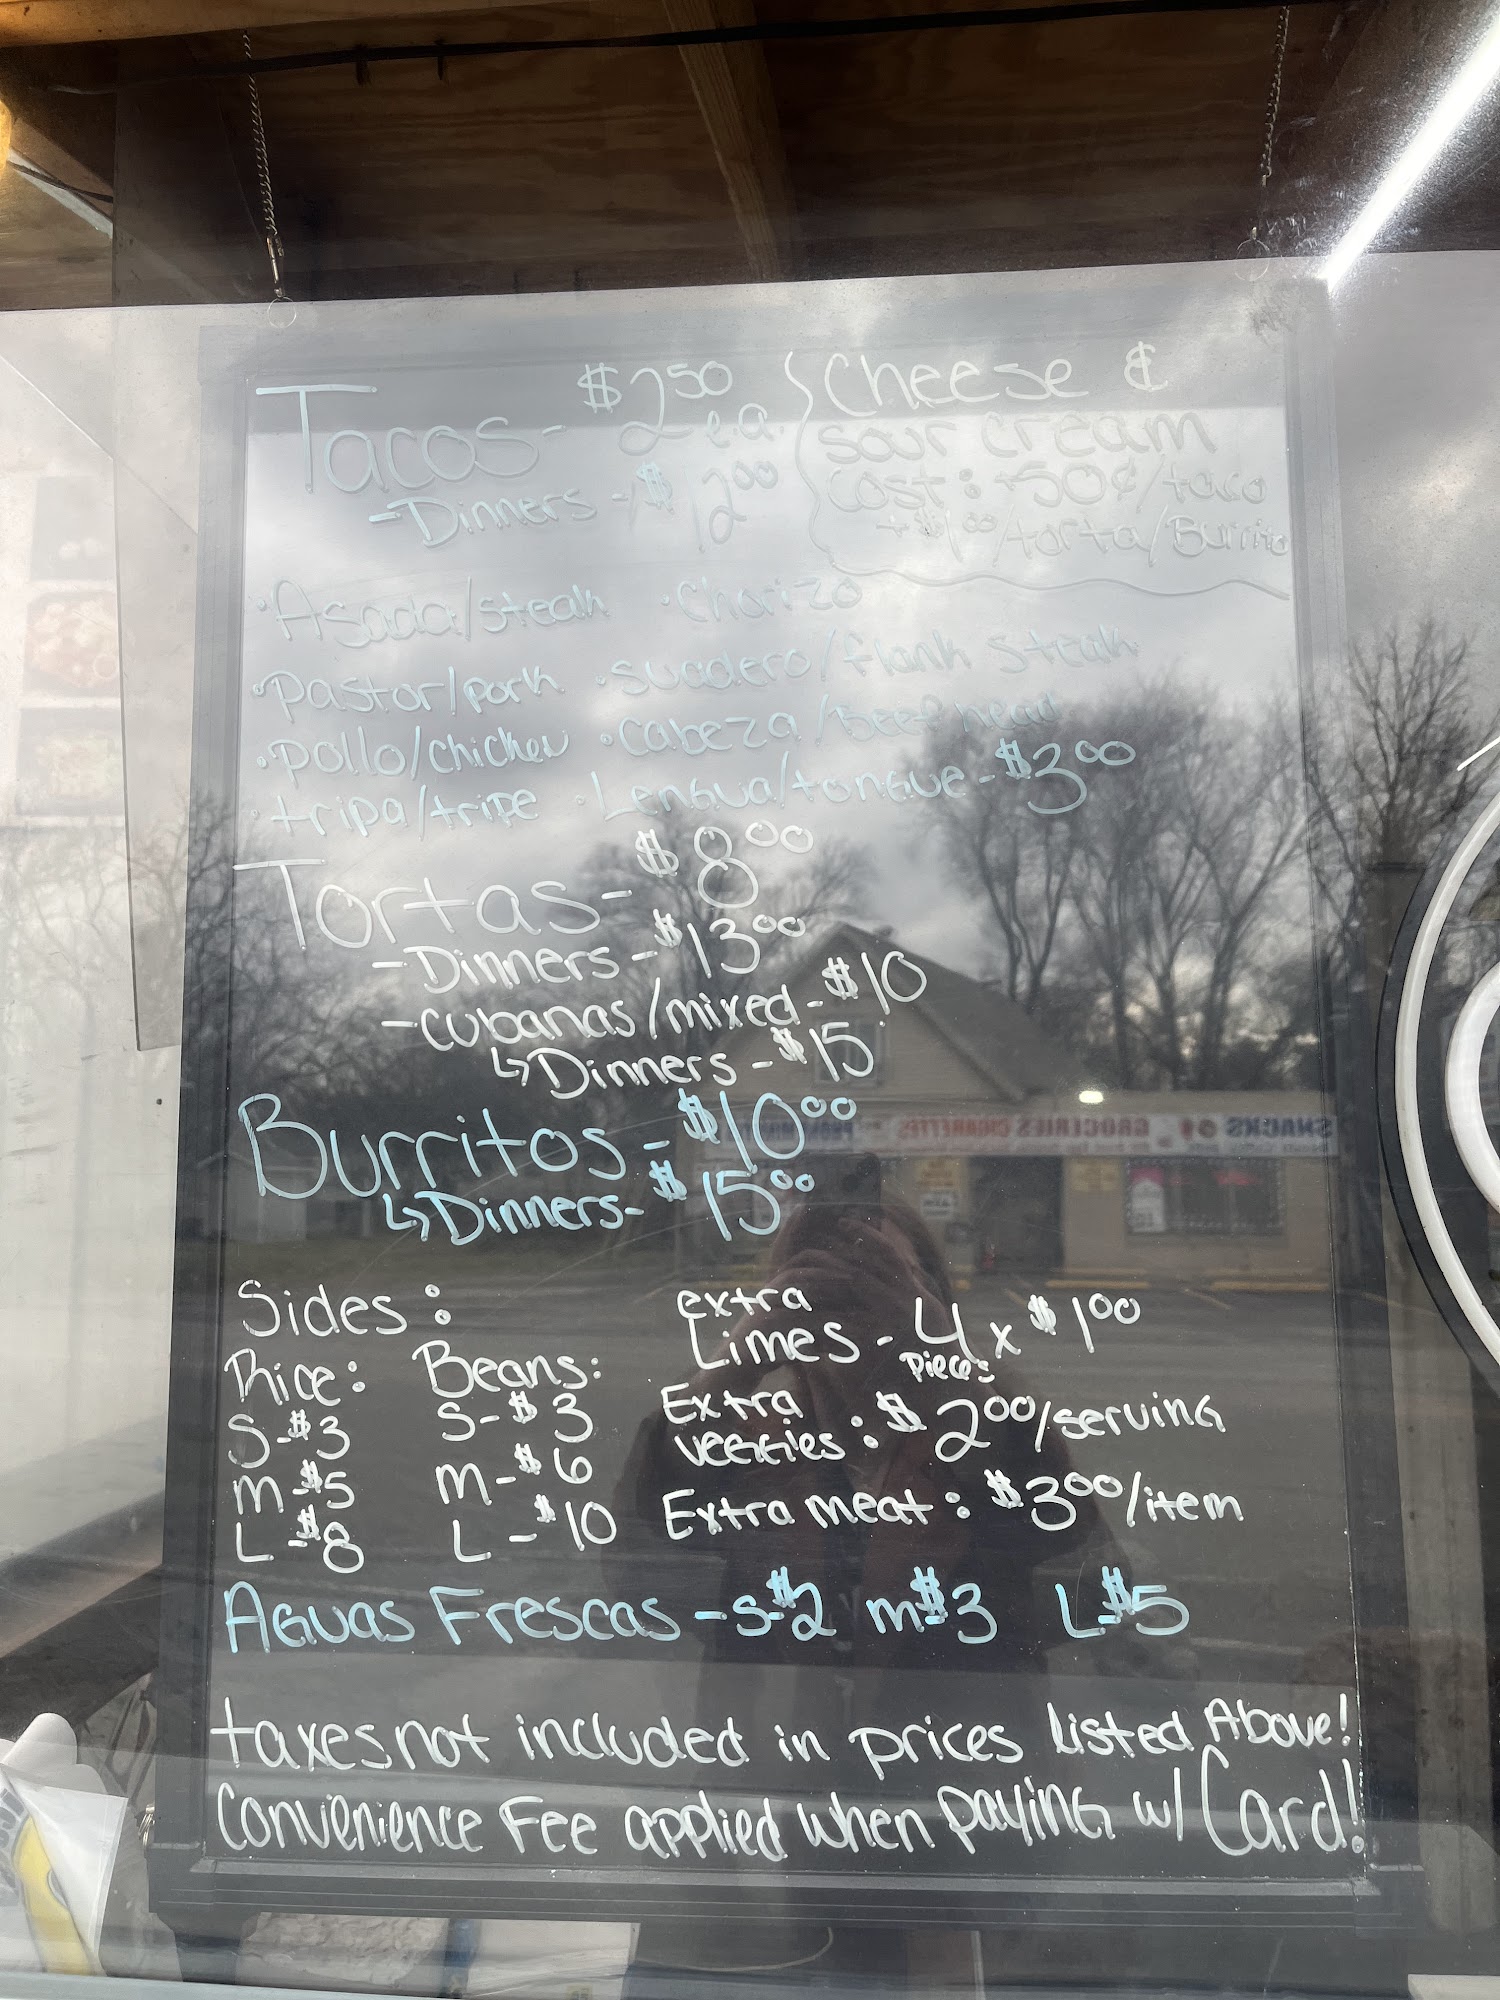 Tacos - $2.50 ea.
- Dinners - $12.00
Cheese &
sour cream
cost: +50¢/taco
+$1.00/torta/Burrito
•Asada/steak •Chorizo
•pastor/pork •suadero/flank steak
•pollo/chicken •cabeza/Beef head
•tripa/tripe •Lengua/tongue - $3.00
Tortas - $8.00
- Dinners - $13.00
- cubanas/mixed - $10
↳ Dinners - $15
Burritos - $10.00
↳ Dinners - $15.00
Sides:
Rice:
S-$3
m-$5
L-$8
Beans:
S-$3
m-$6
L-$10
extra
Limes - 4 x $1.00
pieces
Extra
veggies: $2.00/serving
Extra meat: $3.00/item
Aguas Frescas - S-$2 m$3 L$5
taxes not included in prices Listed Above!
Convenience Fee applied when paying w/ Card!
SNACKS GROCERIES CIGARETTES